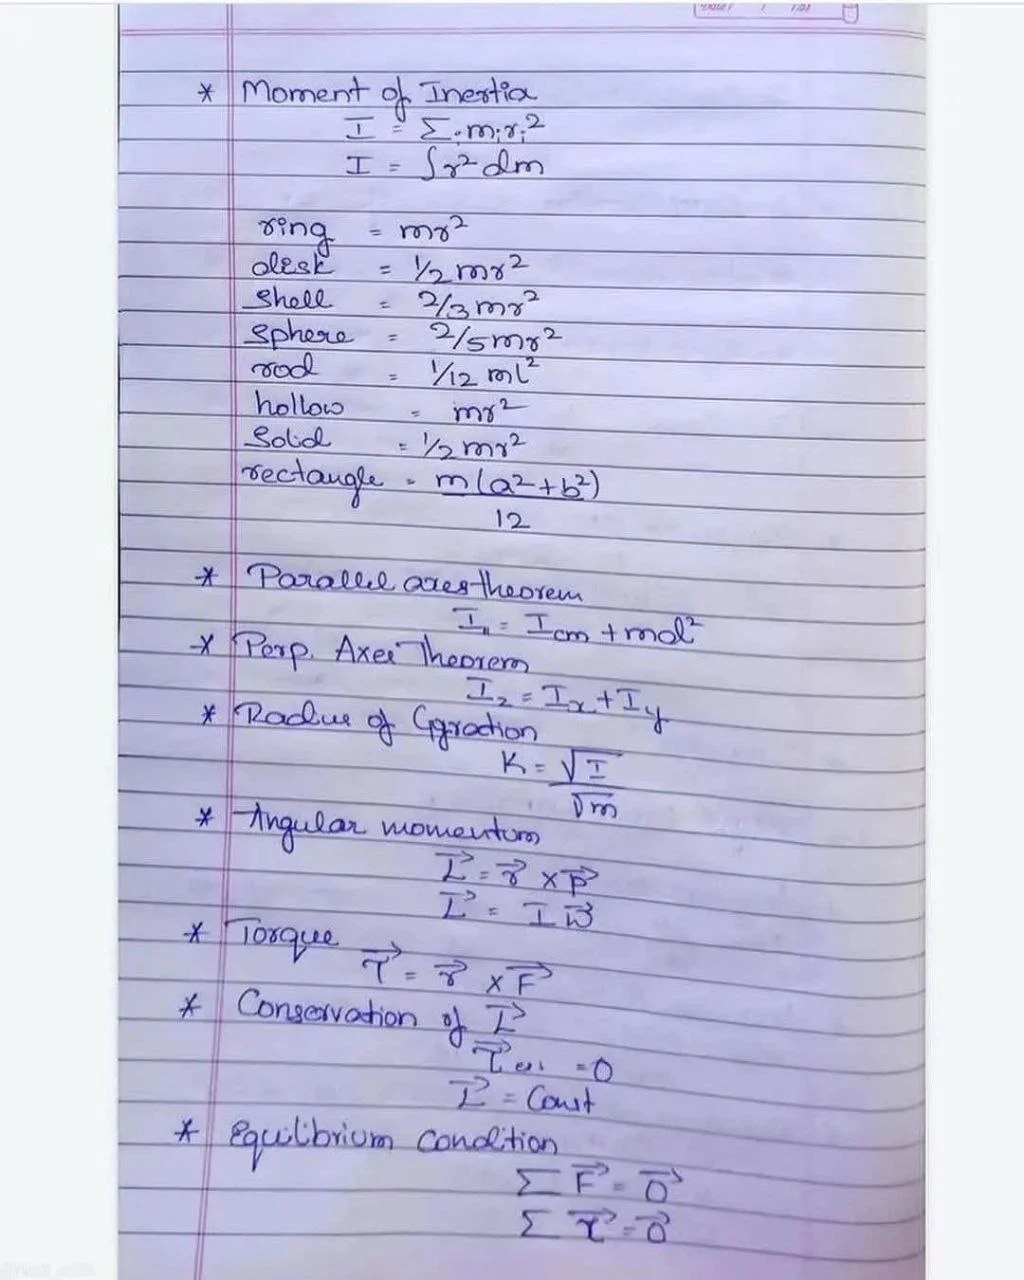 * Moment of Inertia
I = Σ i m i r i ²
I = ∫r² dm
ring = mr²
disk = 1/2 mr²
Shell = 2/3 mr²
Sphere = 2/5 mr²
rod = 1/12 ml²
hollow = mr²
Solid = 1/2 mr²
rectangle = m(a²+b²)
12
* Parallel axes theorem
I₁₁ = Icm + md²
* Perp. Axes Theorem
Iz = Ix + Iy
* Radius of Gyration
K = √I
√m
* Angular momentum
L⃗ = r⃗ × P⃗
L⃗ = I ω⃗
* Torque
τ⃗ = r⃗ × F⃗
* Conservation of L⃗
τ⃗ = 0
L⃗ = Const
* Equilibrium Condition
Σ F⃗ = 0⃗
Σ τ⃗ = 0⃗